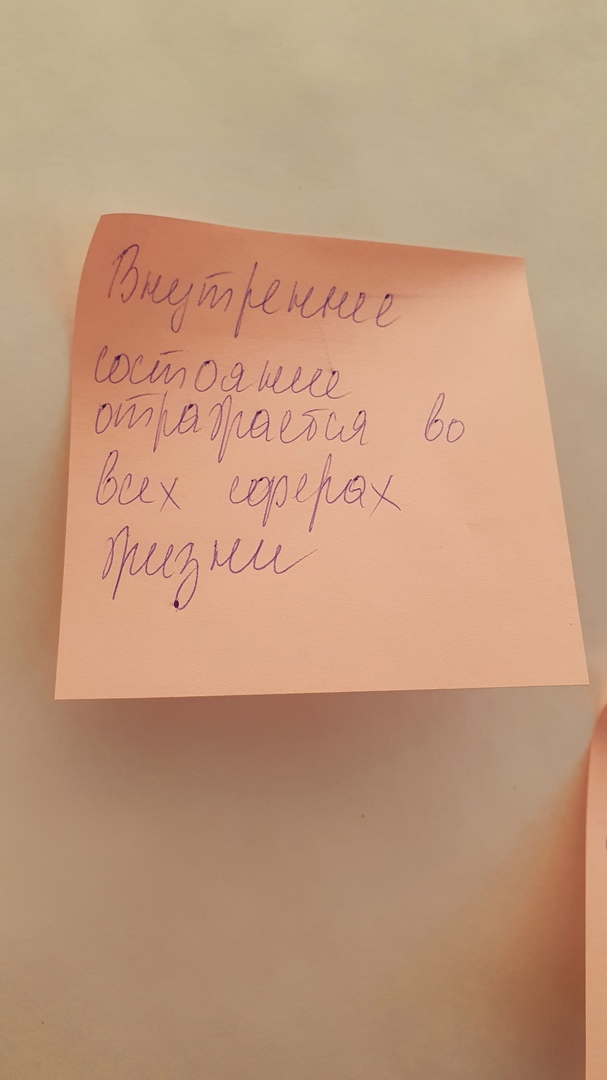 Внутреннее
состояние
отражается во
всех сферах
жизни